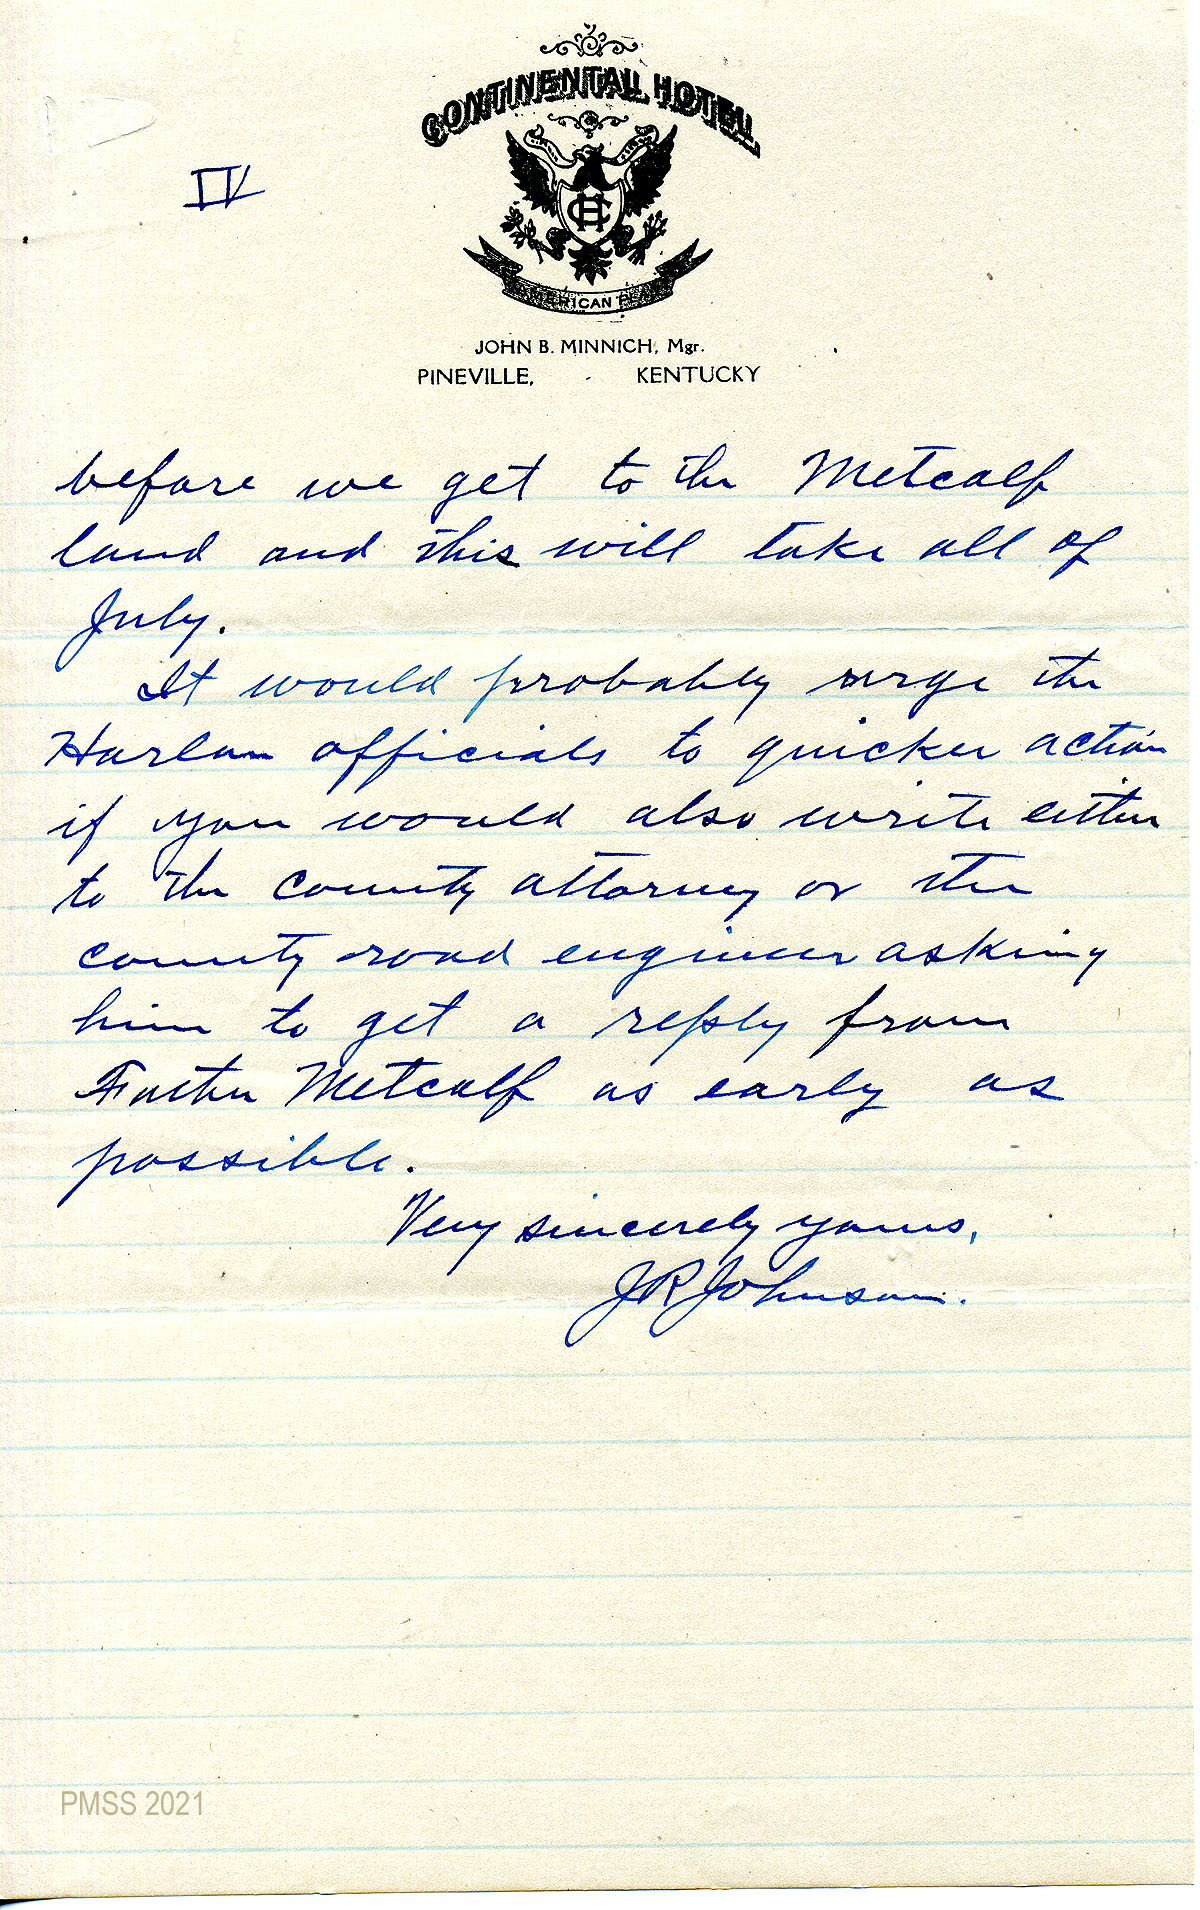 CONTINENTAL HOTEL
IV
CH
AMERICAN PLAN
JOHN B. MINNICH, Mgr.
PINEVILLE, - KENTUCKY
before we get to the Metcalf
land and this will take all of
July.
It would probably urge the
Harlan officials to quicker action
if you would also write either
to the county attorney or the
county road engineer asking
him to get a reply from
Metcalf as early as
possible.
Very sincerely yours,
JRJohnson.
PMSS 2021